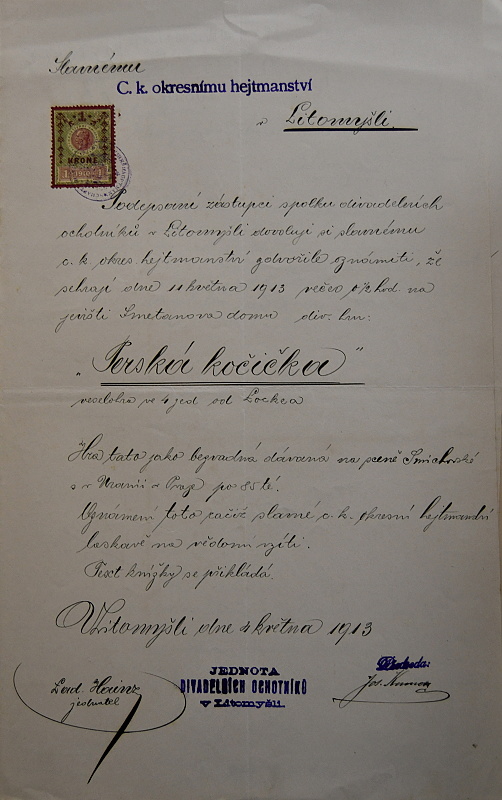 Slavnému
C. k. okresnímu hejtmanství
v Litomyšli.
1
KRONE
Podepsaní zástupci spolku divadelních
ochotníků v Litomyšli dovolují si slavnému
c. k. okres. hejtmanství zdvořile oznámiti, že
sehrají dne 11 května 1913 večer hod. na
jevišti Smetanova domu div. hru:
„Perská kočička"
veselohra ve 4 jed. od
Hra tato jako bezvadná dávaná na scéně Smíchovské
a v Uranii v Praze po 85té.
Oznámení toto račiž slavné c. k. okresní hejtmanství
laskavě na vědomí vzíti.
Text knížky se přikládá.
V Litomyšli dne 4 května 1913
JEDNOTA
DIVADELNÍCH OCHOTNÍKŮ
v Litomyšli.
Předseda:
Lad. Hainz
jednatel
Jos.